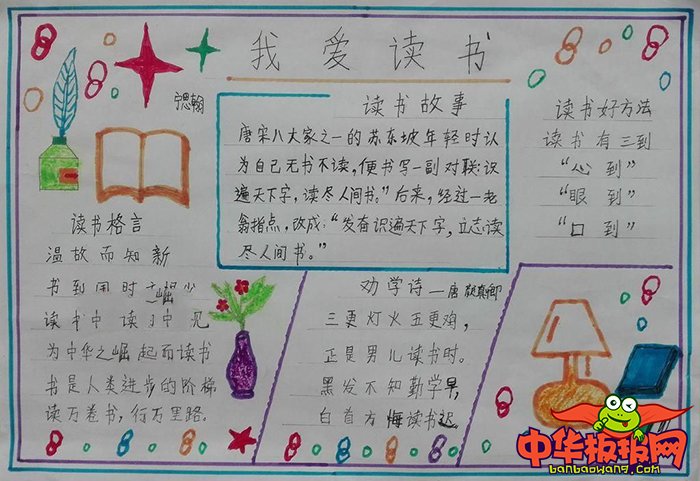 我爱读书
宁思翰
读书故事
唐宋八大家之一的苏东坡年轻时认
为自己无书不读,便书写一副对联:识
遍天下字,读尽人间书。”后来,经过一老
翁指点,改成:“发奋识遍天下字,立志读
尽人间书。”
读书好方法
读书有三到
“心到”
“眼到”
“口到”
读书格言
温故而知新
书到用时 少
读书中读 中见
为中华之崛起而读书
书是人类进步的阶梯
读万卷书,行万里路。
劝学诗——唐 颜真卿
三更灯火五更鸡,
正是男儿读书时。
黑发不知勤学早,
白首方悔读书迟
中华板报网
banbaowang.com